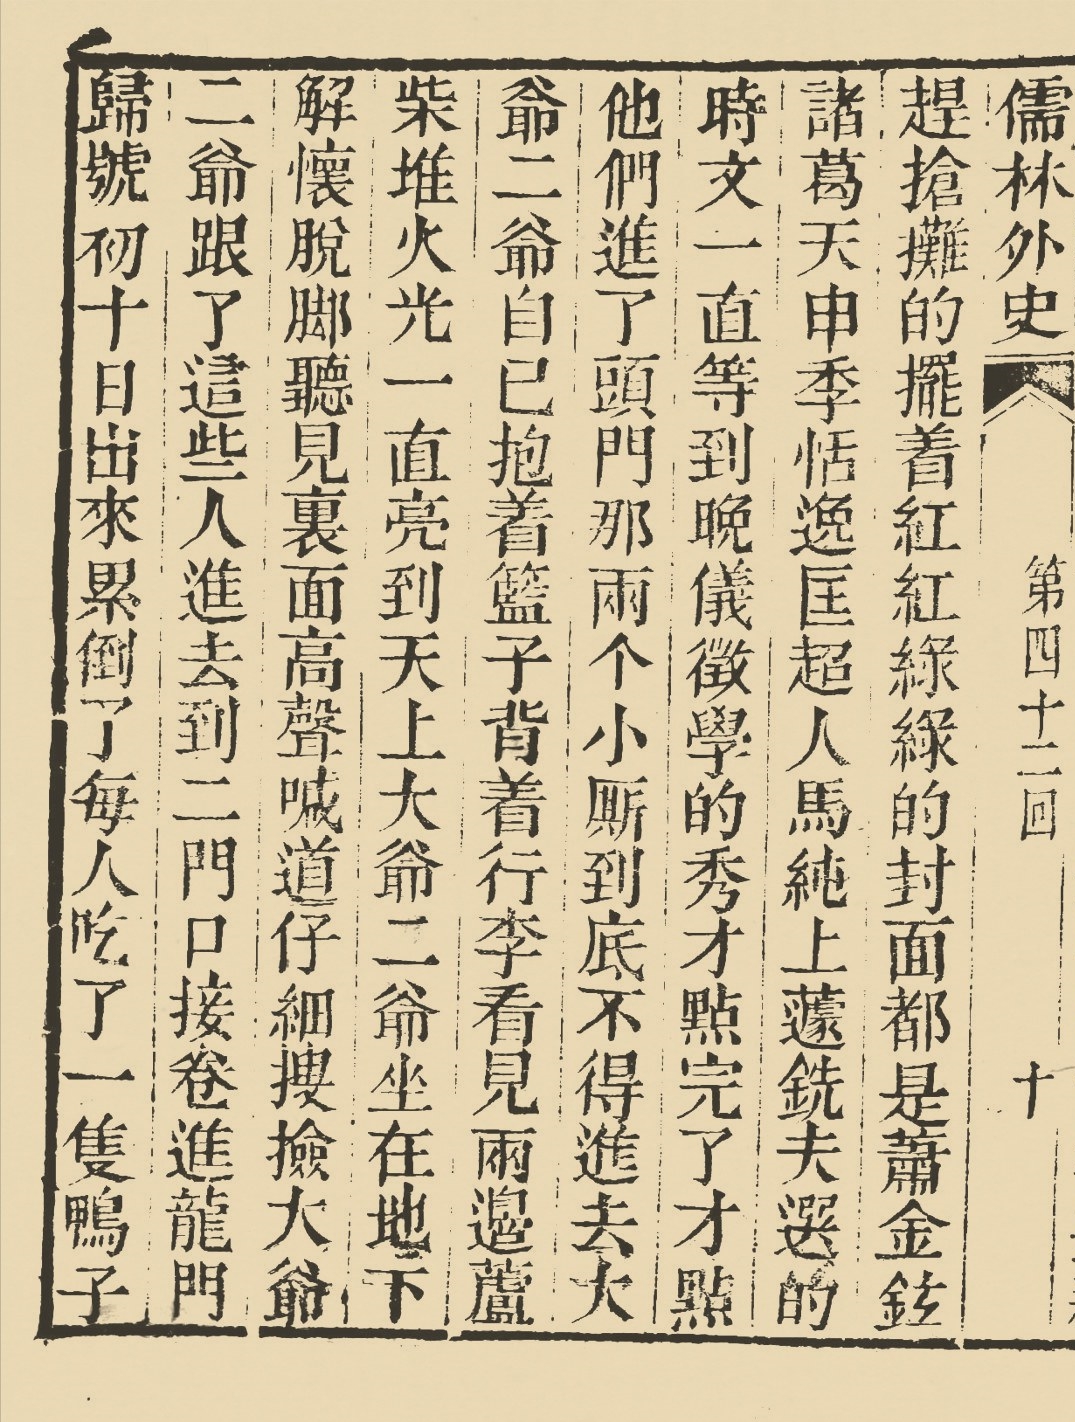 儒林外史
第四十二回
十
趕搶攤的擺着紅紅綠綠的封面都是蕭金鉉
諸葛天申季恬逸匡超人馬純上蘧銑夫選的
時文一直等到晚儀徵學的秀才點完了才點
他們進了頭門那兩个小厮到底不得進去大
爺二爺自已抱着籃子背着行李看見兩邊蘆
柴堆火光一直亮到天上大爺二爺坐在地下
解懷脫脚聽見裏面高聲喊道仔細搜撿大爺
二爺跟了這些人進去到二門口接卷進龍門
歸號初十日出來累倒了每人吃了一隻鴨子